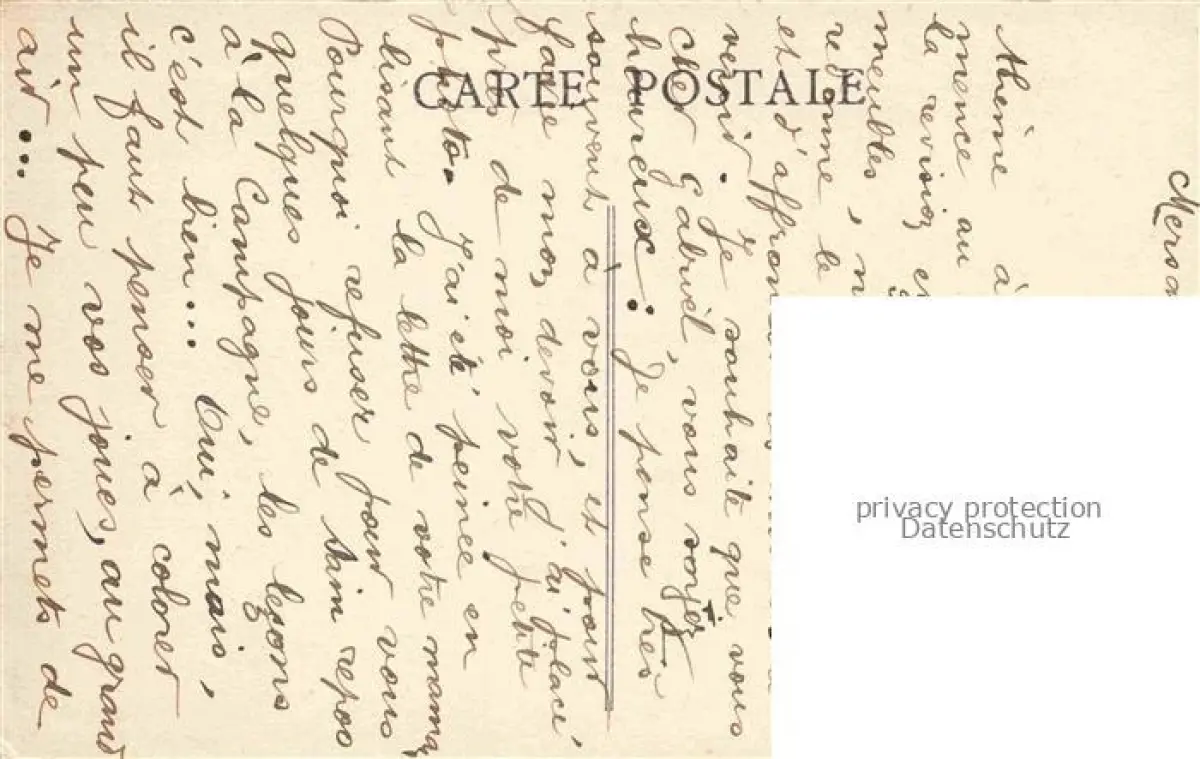 CARTE POSTALE
Mersa
thème à
mence au
la revision e
meubles, n
redonne le
et d'affron
venir. Je souhaite que vous
cher Gabriel, vous soyez
heureux: Je pense très
souvent à vous, et pour
faire mon devoir j'ai placé
près de moi votre petite
photo. J'ai été peinée en
lisant la lettre de votre maman
Pourquoi refuser pour vous
quelques jours de sain repos
à la Campagne, les leçons
c'est bien... Oui, mais,
il faut penser à colorer
un peu vos joues, au grand
air... Je me permets de
privacy protection
Datenschutz